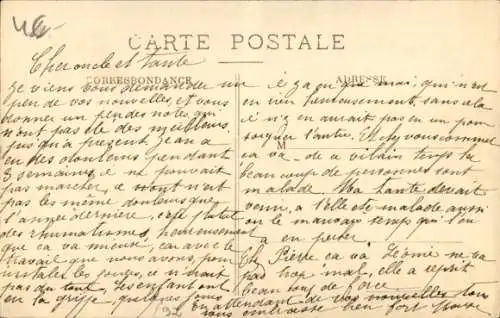 CARTE POSTALE
CORRESPONDANCE
ADRESSE
M
Cher oncle et tante
Je viens vous demander un
peu de vos nouvelles, et vous
donner un peu des notes qui
n'ont pas été des meilleures
jusqu'à présent, Jean a
eu des douleurs pendant
3 semaines, il ne pouvait
pas marcher, ce n'ont n'est
pas les même douleurs que
l'année dernière, c'est plutôt
des rhumatismes, heureusement
que ça va mieux, car avec le
travail que nous avons, pour
installer les
pas du tout, les enfants ont
eu la grippe, quelques jours
il y a que moi, qui n'est
eu rien heureusement, sans cela
il n'y en aurait pas eu un pour
soigner l'autre. Et chez vous comment
ça va - de ce vilain temps la
beaucoup de personnes sont
malade. Ma tante devait
venir, a-t'elle été malade aussi
ou le mauvais temps qui l'en
a empêcher
Pierre ça va, Léonie ne va
pas trop mal, elle a repris
beaucoup de force
en attendant de vos nouvelles tous
vous embrasse bien fort